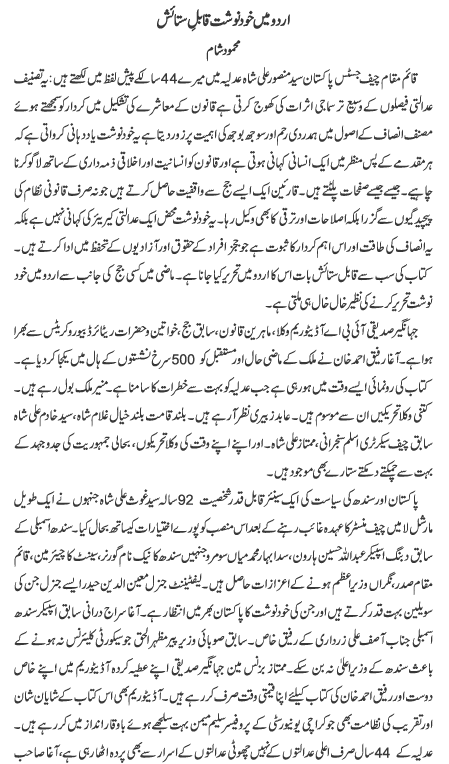 اردو میں خود نوشت قابلِ ستائش
محمود شام
قائم مقام چیف جسٹس پاکستان سید منصور علی شاہ عدلیہ میں میرے 44 سال کے پیش لفظ میں لکھتے ہیں: یہ تصنیف
عدالتی فیصلوں کے وسیع تر سماجی اثرات کی کھوج کرتی ہے قانون کے معاشرے کی تشکیل میں کردار کو سمجھتے ہوئے
مصنف انصاف کے اصول میں ہمدردی رحم اور سوجھ بوجھ کی اہمیت پر زور دیتا ہے یہ خود نوشت یاد دہانی کرواتی ہے کہ
ہر مقدمے کے پس منظر میں ایک انسانی کہانی ہوتی ہے اور قانون کو انسانیت اور اخلاقی ذمہ داری کے ساتھ لاگو کرنا
چاہیے۔ جیسے جیسے صفحات پلٹتے ہیں۔ قارئین ایک ایسے جج سے واقفیت حاصل کرتے ہیں جو نہ صرف قانونی نظام کی
پیچیدگیوں سے گزرا بلکہ اصلاحات اور ترقی کا بھی وکیل رہا۔ یہ خود نوشت محض ایک عدالتی کیریئر کی کہانی نہیں ہے بلکہ
یہ انصاف کی طاقت اور اس اہم کردار کا ثبوت ہے جو ججز افراد کے حقوق اور آزادیوں کے تحفظ میں ادا کرتے ہیں۔
کتاب کی سب سے قابل ستائش بات اس کا اردو میں تحریر کیا جانا ہے۔ ماضی میں کسی جج کی جانب سے اردو میں خود
نوشت تحریر کرنے کی نظیر خال خال ہی ملتی ہے۔
جہانگیر صدیقی آئی بی اے آڈیٹوریم وکلا، ماہرین قانون، سابق جج، خواتین و حضرات ریٹائرڈ بیوروکریٹس سے بھرا
ہوا ہے۔ آغا رفیق احمد خان نے ملک کے ماضی حال اور مستقبل کو 500 سرخ نشستوں کے ہال میں یکجا کر دیا ہے۔
کتاب کی رونمائی ایسے وقت میں ہو رہی ہے جب عدلیہ کو بہت سے خطرات کا سامنا ہے۔ منیر ملک بول رہے ہیں۔
کتنی وکلا تحریکیں ان سے موسوم ہیں۔ عابد زبیری نظر آ رہے ہیں۔ بلند قامت بلند خیال غلام شاہ، سید خادم علی شاہ
سابق چیف سیکرٹری اسلم سنجرانی، ممتاز علی شاہ۔ اور اپنے اپنے وقت کی وکلا تحریکوں، بحالی جمہوریت کی جدوجہد کے
بہت سے چمکتے دمکتے ستارے بھی موجود ہیں۔
پاکستان اور سندھ کی سیاست کی ایک سینئر قابل قدر شخصیت 92 سالہ سید غوث علی شاہ جنہوں نے ایک طویل
مارشل لا میں چیف منسٹر کا عہدہ غائب رہنے کے بعد اس منصب کو پورے اختیارات کیساتھ بحال کیا۔ سندھ اسمبلی کے
سابق دبنگ اسپیکر عبداللہ حسین ہارون، سدا بہار محمد میاں سومرو جنہیں سندھ کا نیک نام گورنر، سینٹ کا چیئرمین، قائم
مقام صدر، نگراں وزیر اعظم ہونے کے اعزازات حاصل ہیں۔ لیفٹیننٹ جنرل معین الدین حیدر ایسے جنرل جن کی
سویلین بہت قدر کرتے ہیں اور جن کی خود نوشت کا پاکستان بھر میں انتظار ہے۔ آغا سراج درانی سابق اسپیکر سندھ
اسمبلی جناب آصف علی زرداری کے رفیق خاص۔ سابق صوبائی وزیر پیر مظہر الحق جو سیکورٹی کلیئرنس نہ ہونے کے
باعث سندھ کے وزیر اعلیٰ نہ بن سکے۔ ممتاز بزنس مین جہانگیر صدیقی اپنے عطیہ کردہ آڈیٹوریم میں اپنے خاص
دوست اور رفیق احمد خان کی کتاب کیلئے اپنا قیمتی وقت صرف کر رہے ہیں۔ آڈیٹوریم بھی اس کتاب کے شایان شان
اور تقریب کی نظامت بھی جو کراچی یونیورسٹی کے پروفیسر سلیم میمن بہت سلجھے ہوئے باوقار انداز میں کر رہے ہیں۔
عدلیہ کے 44 سال صرف اعلی عدالتوں کے نہیں چھوٹی عدالتوں کے اسرار سے بھی پردہ اٹھا رہی ہے، آغا صاحب